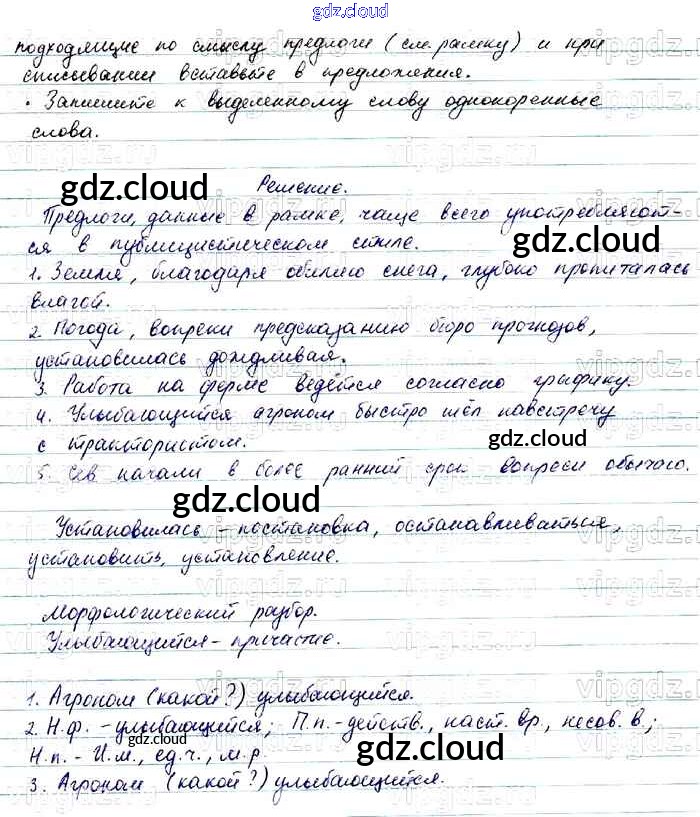 gdz.cloud
подходящие по смыслу предлоги (см. рамку) и при
списывании вставьте в предложения.
• Запишите к выделенному слову однокоренные
слова.
Решение.
Предлоги, данные в рамке, чаще всего употребляют-
ся в публицистическом стиле.
1. Земля, благодаря обилию снега, глубоко пропиталась
влагой.
2. Погода, вопреки предсказанию бюро прогнозов,
установилась дождливая.
3. Работа на ферме ведётся согласно графику.
4. Улыбающийся агроном быстро шёл навстречу
с трактористом.
5. Сев начали в более ранний срок вопреки обычаю.
Установилась – постановка, останавливаться,
установить, установление.
Морфологический разбор.
Улыбающийся – причастие.
1. Агроном (какой?) улыбающийся.
2. Н.ф. – улыбающийся; П.п. – действ., наст. вр., несов. в.;
Н.п. – И.п., ед.ч., м.р.
3. Агроном (какой?) улыбающийся.